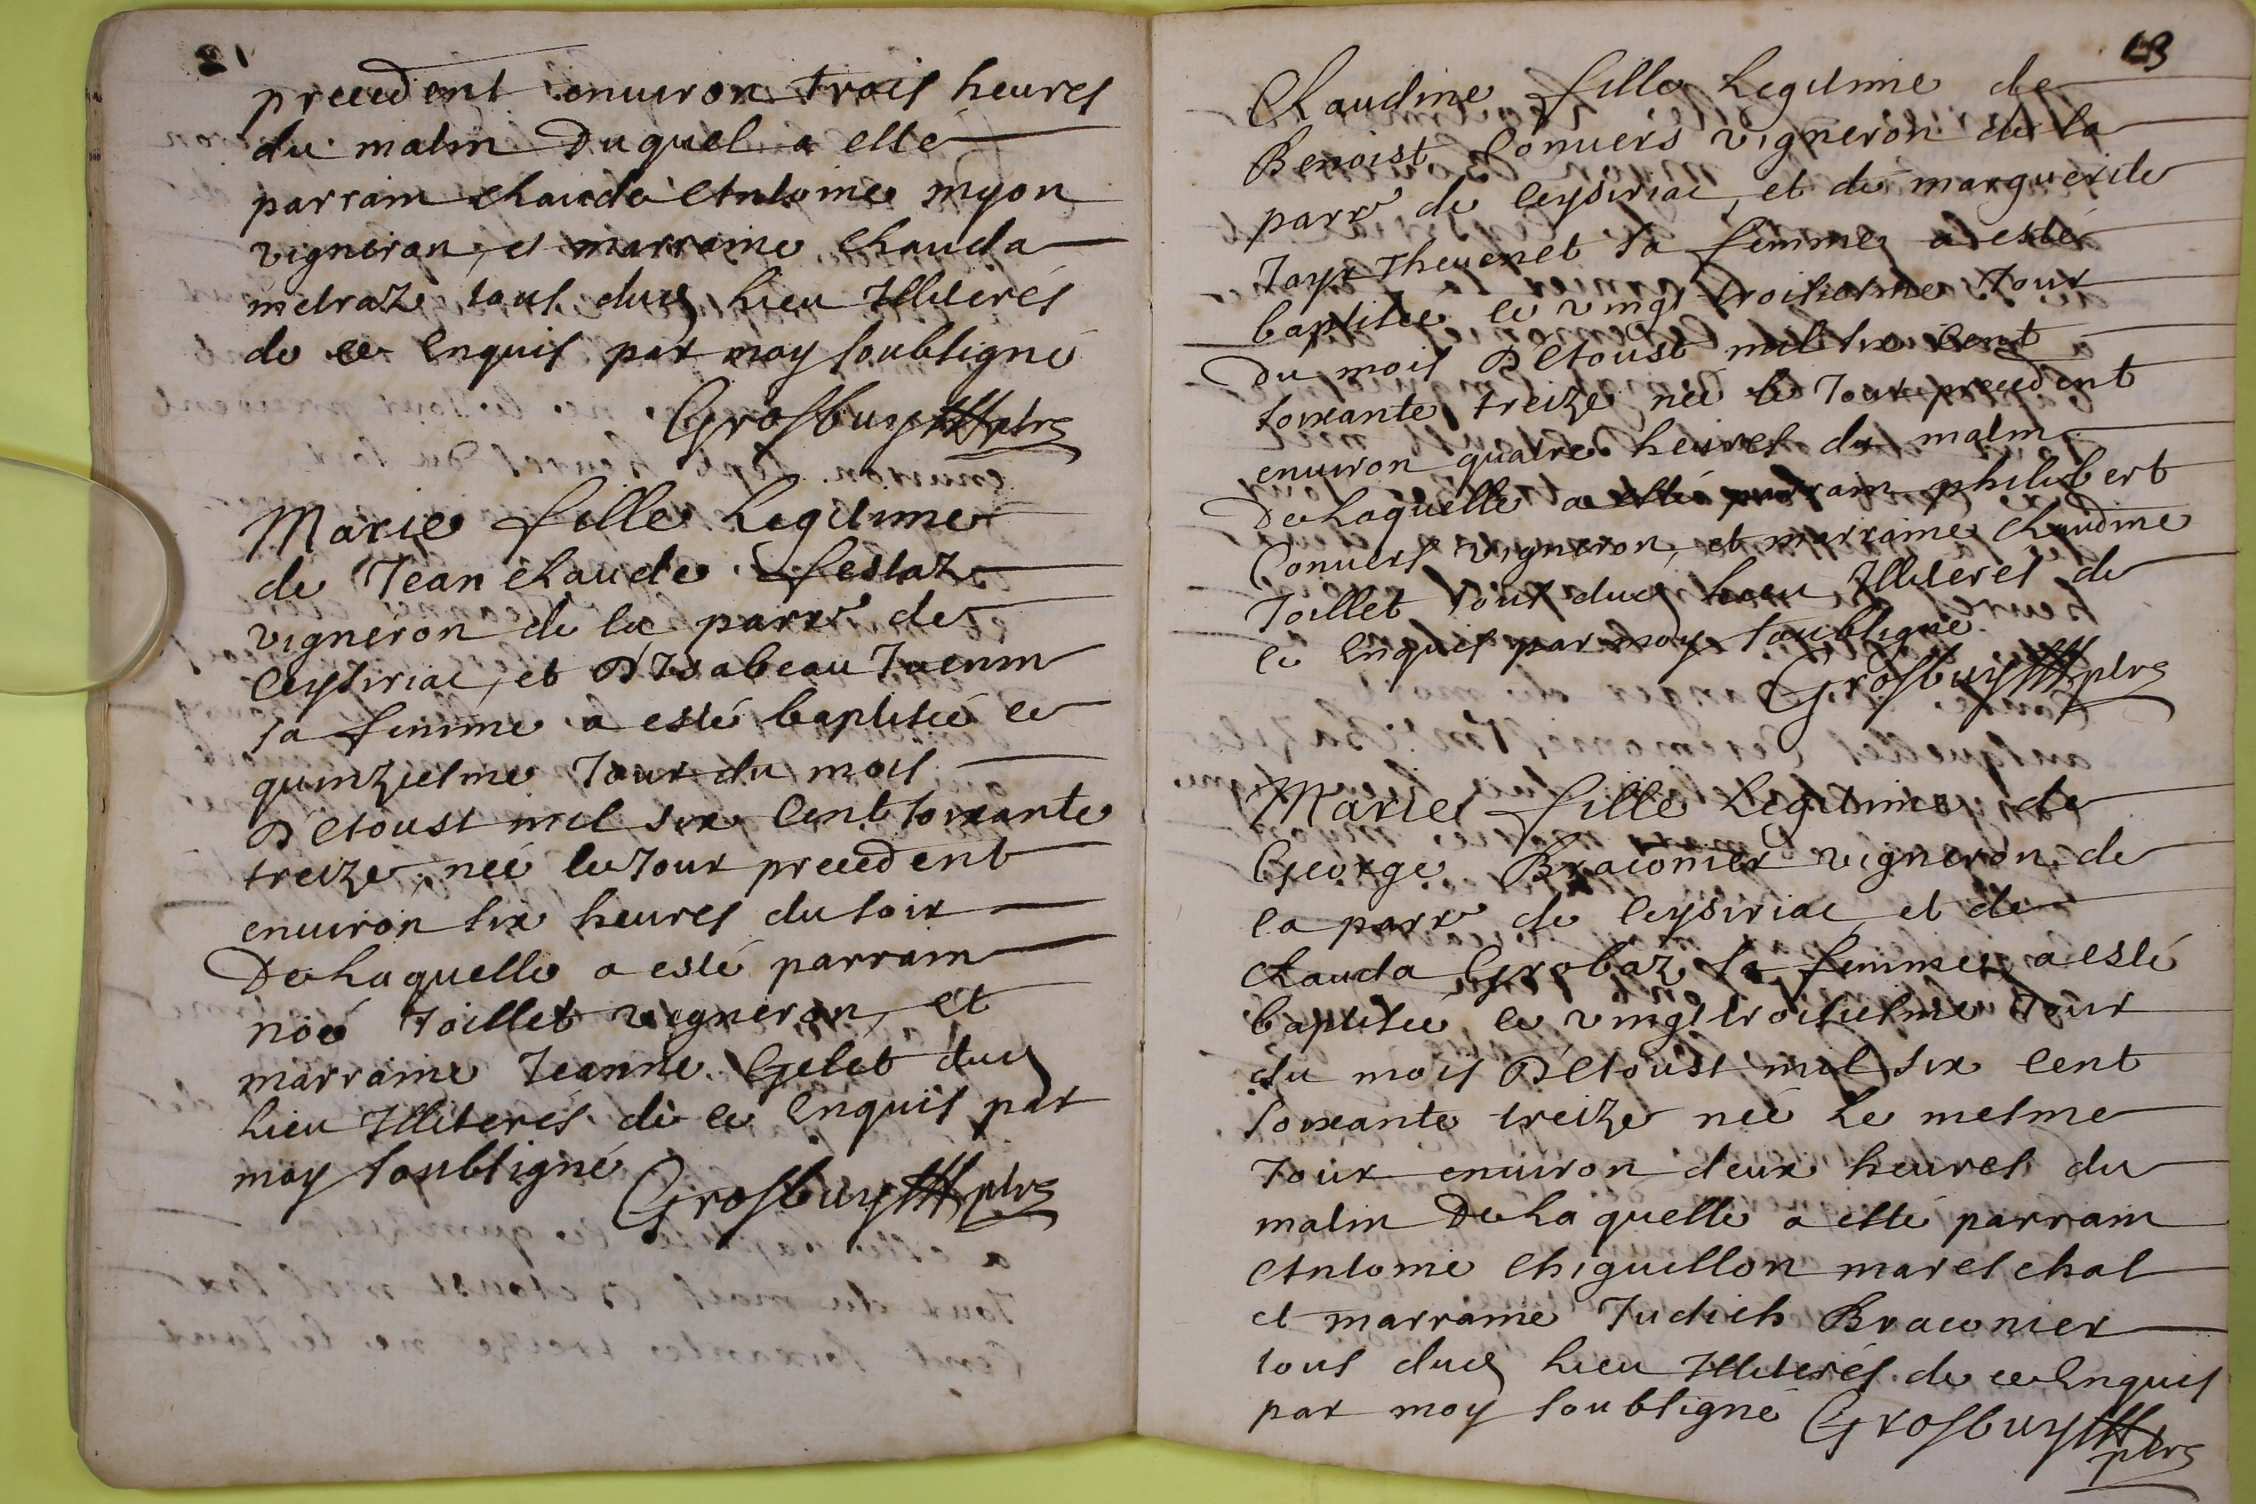 precedent enuiron trois heures
du matin Duquel a este
parrain Claude Antoine myon
vigneron, et marraine Clauda
metraz tous dud lieu Illiterés
de ce Enquis par moy soubsigné
Grosbuy ptre
Marie fille Legitime
de Jean Claude festaz
vigneron de la parre de
Ceysiriac, et D'Isabeau Juenin
sa femme a esté baptisée le
quinziesme Jour du mois
D'Aoust mil six Cent soixante
treize, née le Jour precedent
enuiron six heures du soir
De Laquelle a esté parrain
noé Joillet vigneron, et
marraine Jeanne Gelet dud
Lieu Illiterés de ce Enquis par
moy soubsigné
Grosbuy ptre
13
Claudine fille Legitime de
Benoist Conuers vigneron de la
parre de Ceysiriac, et de marguerite
Jayr Theuenet sa femme a esté
baptisée le vingt troisiesme Jour
Du mois D'Aoust mil six Cent
soixante treize née le Jour precedent
enuiron quatre heures du matin
De Laquelle a esté parrain philibert
Conuers vigneron, et marraine Claudine
Joillet tous dud Lieu Illiterés de
ce Enquis par moy soubsigné
Grosbuy ptre
Marie fille Legitime de
George Braconier vigneron de
la parre de Ceysiriac et de
Clauda Grobaz sa femme, a esté
baptisée le vingt troisiesme Jour
du mois D'Aoust mil six Cent
soixante treize née Le mesme
Jour enuiron deux heures du
matin De Laquelle a esté parrain
Antoine Chiguillon mareschal
et marraine Judich Braconier
tous dud Lieu Illiterés de ce Enquis
par moy soubsigné Grosbuy
ptre